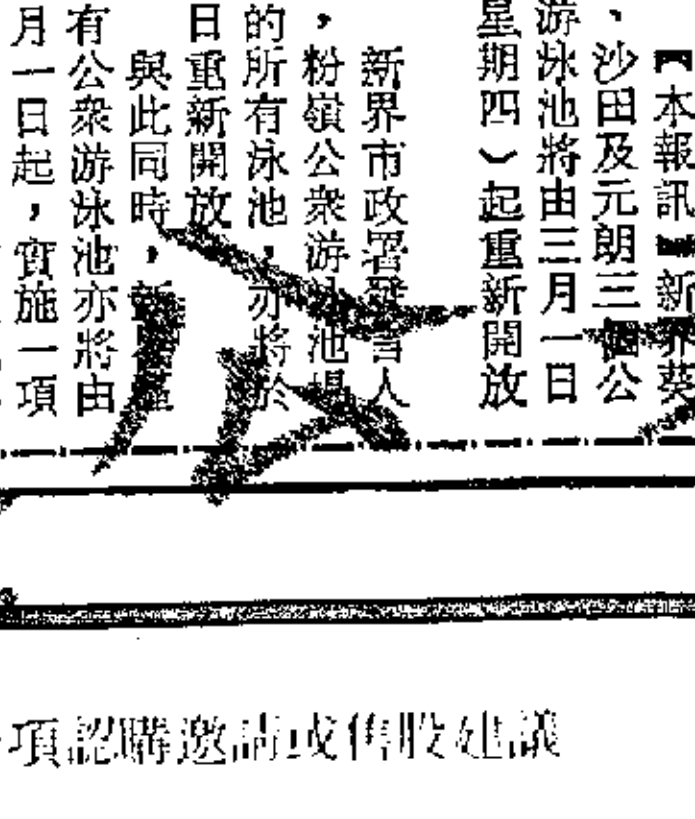 【本報訊】新界葵
、沙田及元朗三個公
游泳池將由三月一日
星期四）起重新開放
新界市政署發言人
，粉嶺公衆游泳池場
的所有泳池，亦將於
日重新開放
與此同時，新界
有公衆游泳池亦將由
月一日起，實施一項
項認購邀請或售股建議